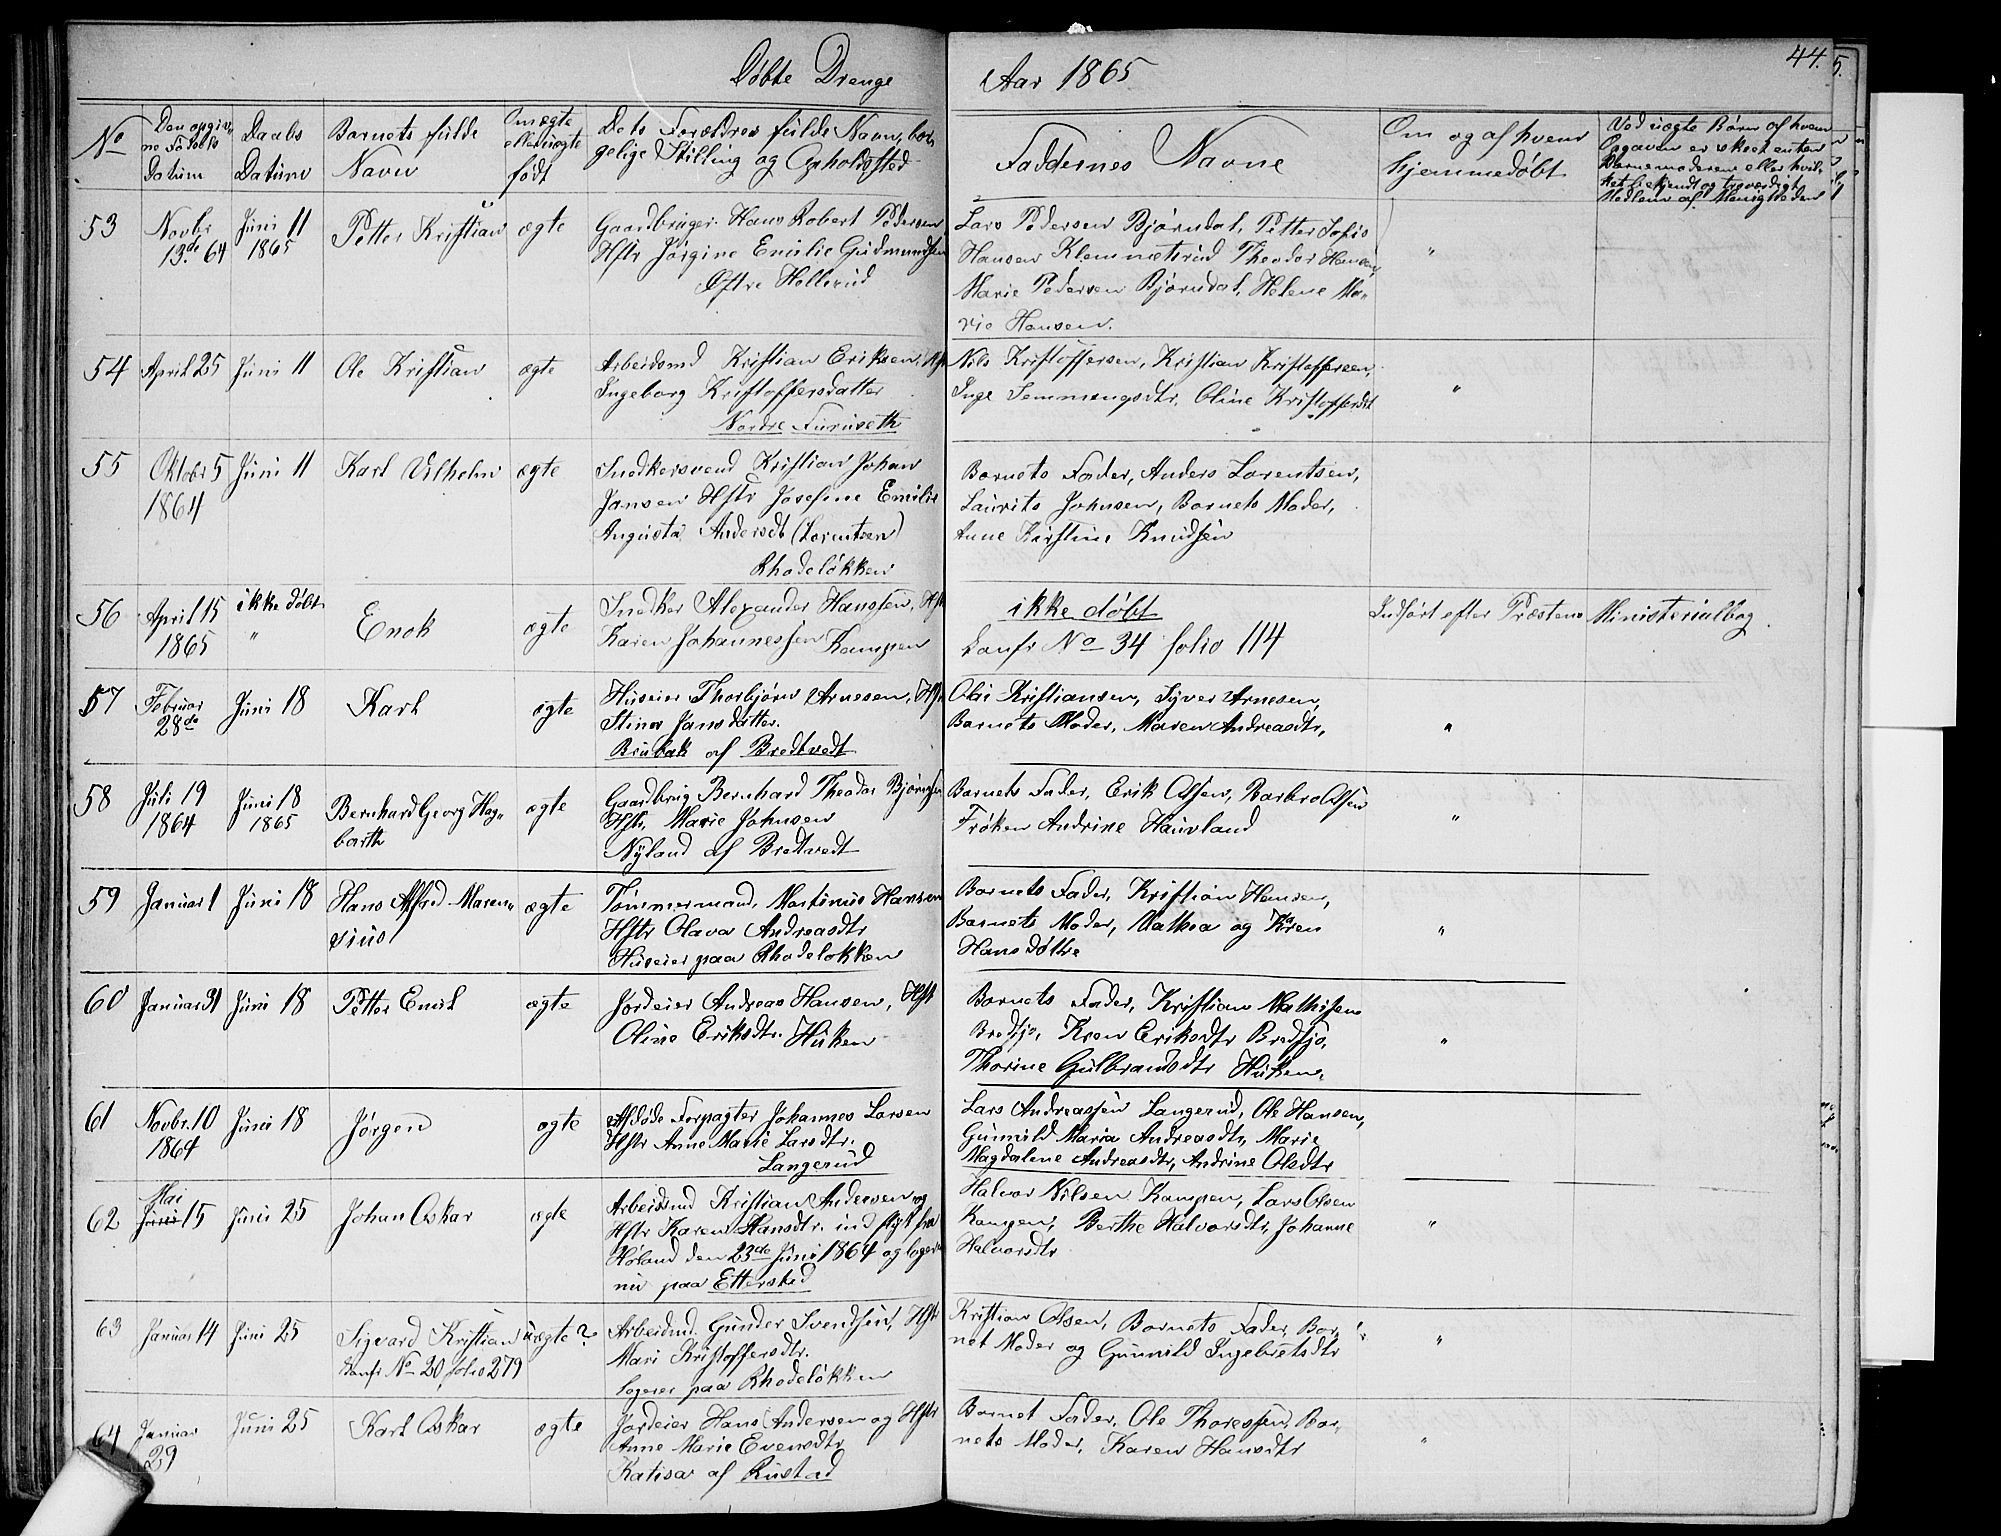 Døbte Drenge
Aar 1865
44.
5.
No
Den opgiv-
ne Fødsels
Datum
Daabs
Datum
Barnets fulde
Navn
Om ægte
eller uægte
født
Dets Forældres fulde Navn, bor-
gelige Stilling og Opholdssted
Faddernes Navne
Om og af hvem
hjemmedøbt
Ved uægte Børn af hvem
Opgaven er skeet enten
Barnemoderen eller hvil-
ket bekjendt og troværdigt
Medlem af Menigheden
53
Novbr
13de 64
Juni 11
1865
Petter Kristian
ægte
Gaardbruger Hans Robert Pedersen
Hstr Jørgine Emilie Gudmundsen
Østre Hellerud
Lars Pedersen Bjørndal, Petter Jofis
Hansen Klemmetsrud Theodor Hansen
Marie Pedersen Bjørndal, Helene Ma-
rie Hansen.
"
54
April 25
Juni 11
Ole Kristian
ægte
Arbeidsmd Kristian Eriksen, Hstr
Ingeborg Kristoffersdatter
Nordre Furuseth
Nils Kristoffersen, Kristian Kristoffersen,
Inge Semmengsdtr, Oline Kristoffersdt
"
55
Oktobr 5
1864
Juni 11
Karl Vilhelm
ægte
Snedkersvend Kristian Johan
Jansen Hstr Josefine Emilie
Augusta Andersdt (Lorentsen)
Rhodeløkken
Barnets Fader, Anders Lorentsen,
Laurits Johnsen, Barnets Moder,
Anne Kirstine Knudsen
56
April 15
1865
ikke døbt
"
Enok
ægte
Snedker Alexander Hanssen, Hstr
Karen Johannessen Kampen
ikke døbt
Confr No 34 folio 114
Indført efter Præstens Ministerialbog.
57
Februar
28de
Juni 18
Karl
ægte
Huseier Thorbjørn Arnesen, Hstr
Stina Jansdatter.
Brubak af Bredtvedt
Olai Kristiansen, Syver Arnesen,
Barnets Moder, Maren Andreasdtr,
"
58
Juli 19
1864
Juni 18
1865
Bernhard Georg Hag-
barth
ægte
Gaardbrug Bernhard Theodor Bjørnsen
Hstr, Marie Johnsen
Nyland af Bredtvedt
Barnets Fader, Erik Olsen, Barbro Olsen
Frøken Andrine Hauvland
"
59
Januar 1
Juni 18
Hans Alfred Maren-
sius
ægte
Tømmermand, Martinus Hansen
Hstr Olava Andreasdtr
Huseier paa Rhodeløkken
Barnets Fader, Kristian Hansen,
Barnets Moder, Mathea og Karen
Hansdøttre
"
60
Januar 31
Juni 18
Petter Emil
ægte
Jordeier Andreas Hansen, Hstr
Oline Eriksdtr. Huken
Barnets Fader, Kristian Mathisen
Bredsjø, Karen Eriksdtr Bredsjø,
Thorine Gulbrandsdtr Huken.
"
61
Novbr. 10
1864
Juni 18
Jørgen
ægte
Afdøde Forpagter Johannes Larsen
Hstr Anne Marie Larsdtr.
Langerud
Lars Andreassen Langerud, Ole Hansen,
Gunnild Maria Andreasdtr, Marie
Magdalene Andreasdtr, Andrine Olsdtr
62
Mai
Juni 15
Juni 25
Johan Oskar
ægte
Arbeidsmd Kristian Andersen og
Hstr Karen Hansdtr. indflyt fra
Høland den 23de Juni 1864 og logerer
nu paa Ettersted
Halvor Nilsen Kampen, Lars Olsen
Kampen, Berthe Halvorsdtr, Johanne
Halvorsdtr
"
63
Januar 14
Juni 25
Sigvard Kristian
Confr No 20 folio 279
uægte?
Arbeidmd. Gunder Svendsen, Hstr
Mari Kristoffersdtr.
logerer paa Rhodeløkken
Kristian Olsen, Barnets Fader, Bar-
net Moder og Gunnild Ingebretsdtr
"
64
Januar
29
Juni 25
Karl Oskar
ægte
Jordeier Hans Andersen og Hstr
Anne Marie Evensdtr
Katisa af Rustad
Barnet Fader, Ole Thoressen, Bar-
nets Moder, Karen Hansdtr
"